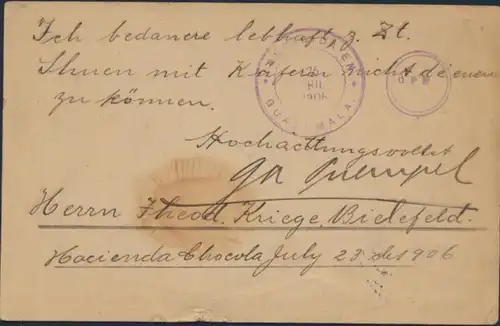 Ich bedauere lebhaft z. Zt.
Ihnen mit Käfern nicht dienen
zu können.
Hochachtungsvollst
Herrn Theod. Kriege, Bielefeld.
Hacienda Chocola July 23 de 1906
GUATEMALA